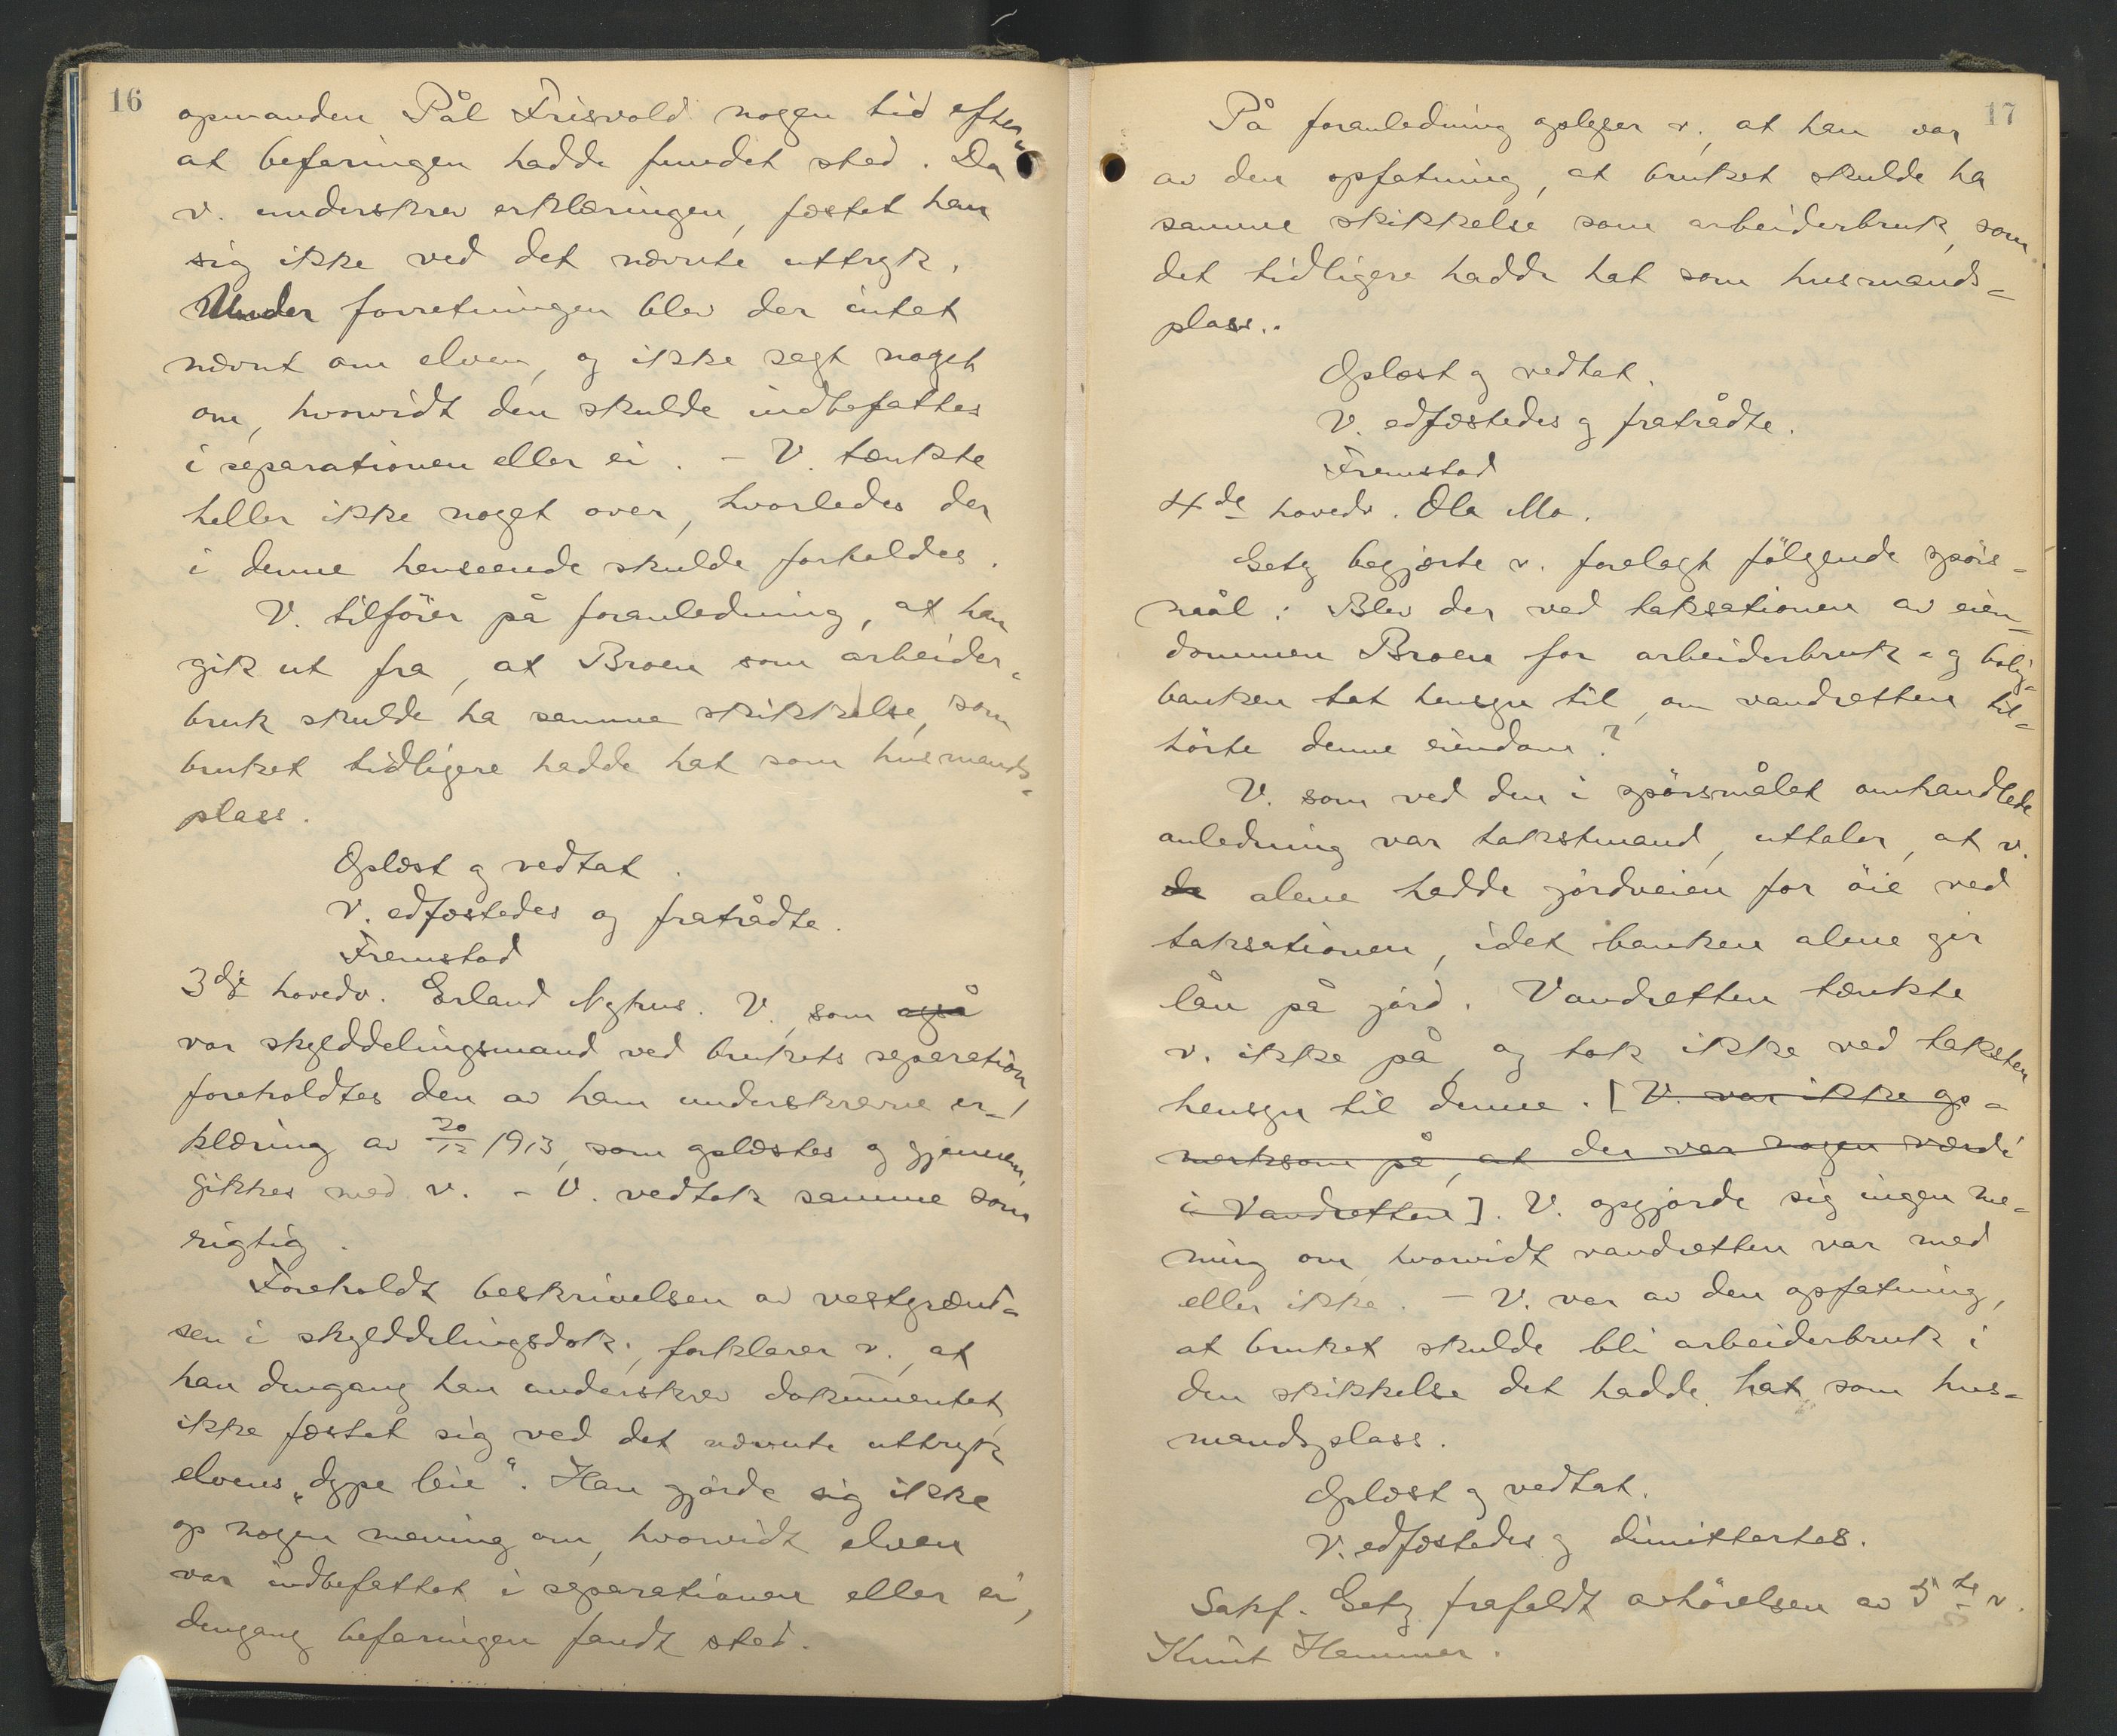 16
opmanden Pål Frisvold nogen tid efter,
at befaringen hadde fundet sted. Da
v. underskrev erklæringen, fæstet han
sig ikke ved det nævnte uttryk.
Under forretningen blev der intet
nævnt om elven, og ikke sagt noget
om, hvorvidt den skulde indbefattes
i separationen eller ei. - V. tænkte
heller ikke noget over, hvorledes der
i denne henseende skulde forholdes.
V. tilföier på foranledning, at han
gik ut fra, at Broen som arbeider-
bruk skulde ha samme skikkelse, som
bruket tidligere hadde hat som husmands-
plass.
Oplæst og vedtat.
V. edfæstedes og fratrådte.
Fremstod
3dje hovedv. Erland Nyhus. V., som også
var skylddelingsmand ved brukets separation
foreholdtes den av ham underskrevne er-
klæring av 20/12 1913, som oplæstes og gjennem-
gikkes med v. - V. vedtok samme som
rigtig.
Foreholdt beskrivelsen av vestgrænd-
sen i skylddelingsdok., forklarer v., at
han dengang han underskrev dokumentet,
ikke fæstet sig ved det nævnte uttryk
elvens „dype leie“. Han gjorde sig ikke
op nogen mening om, hvorvidt elven
var indbefattet i separationen eller ei,
dengang befaringen fandt sted.
17
På foranledning oplyser v., at han var
av den opfatning, at bruket skulde ha
samme skikkelse som arbeiderbruk, som
det tidligere hadde hat som husmands-
plass..
Oplæst og vedtat.
V. edfæstedes og fratrådte.
Fremstod
4de hovedv. Ola Mo.
Getz begjærte v. forelagt fölgende spörs-
mål: Blev der ved taksationen av eien-
dommen Broen for arbeiderbruk- og bolig-
banken tat hensyn til, om vandretten til-
hörte denne eiendom?
V. som ved den i spörsmålet omhandlede
anledning var takstmand, uttaler, at v.
da alene hadde jordveien for öie ved
taksationen, idet banken alene gir
lån på jord. Vandretten tænkte
v. ikke på, og tok ikke ved taksten
hensyn til denne. [V. var ikke op-
merksom på, at der var nogen værdi
i Vandretten]. V. opgjorde sig ingen me-
ning om, hvorvidt vandretten var med
eller ikke. - V. var av den opfatning,
at bruket skulde bli arbeiderbruk i
den skikkelse det hadde hat som hus-
mandsplass.
Oplæst og vedtat.
V. edfæstedes og dimittertes.
Sakf. Getz frafaldt avhörelsen av 5te v.
Knut Hemmer.